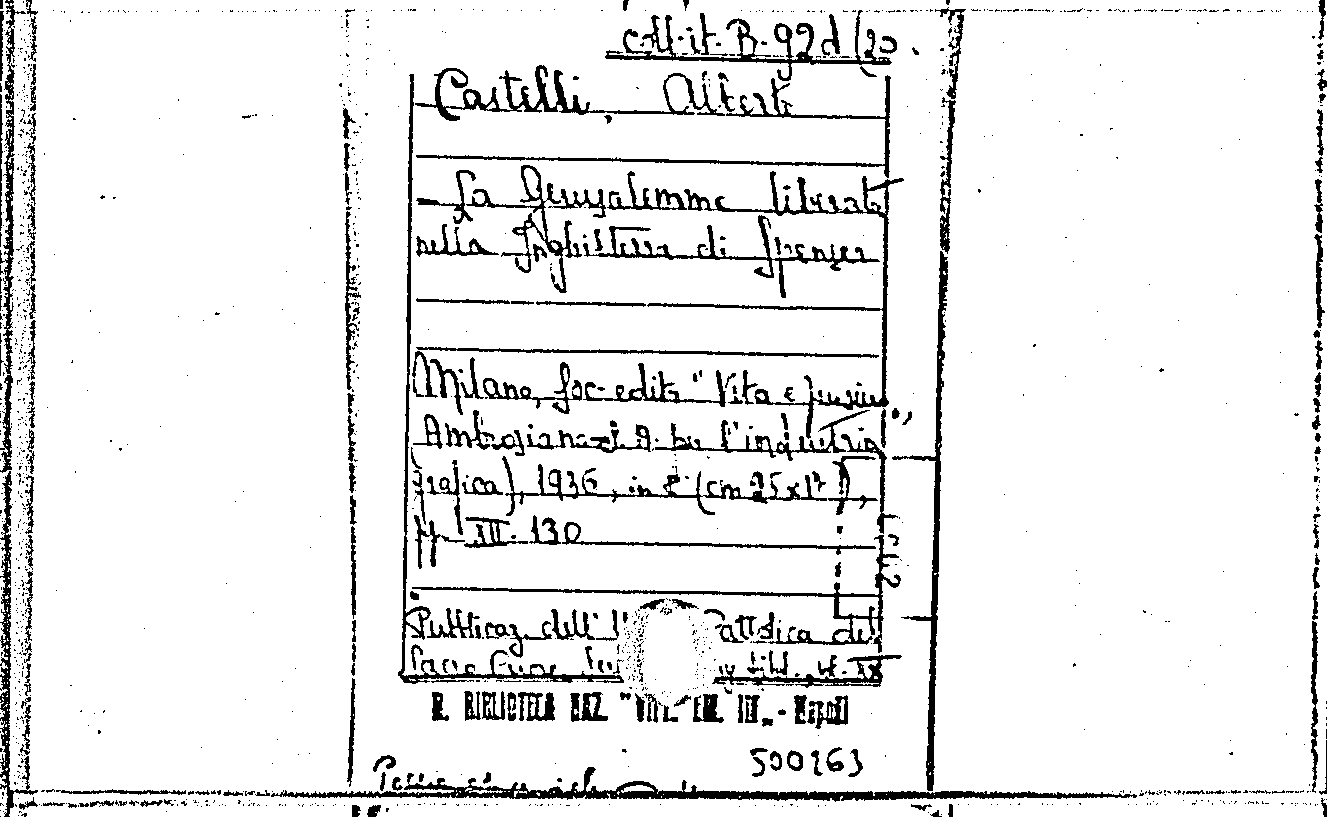 Coll. it. B. 92d (20.
Castelli, Alberto
- La Gerusalemme liberata
nella Inghilterra di Spenser
Milano, Soc. edit. "Vita e pensiero",
Ambrosiana S. A. per l'industria
grafica), 1936, in 8° (cm 25x17),
pp. XII. 130
Pubblicaz. dell' Cattolica del
Sacro Cuore.
R. BIBLIOTECA NAZ. "VITT. EM. III„ - Napoli
500163